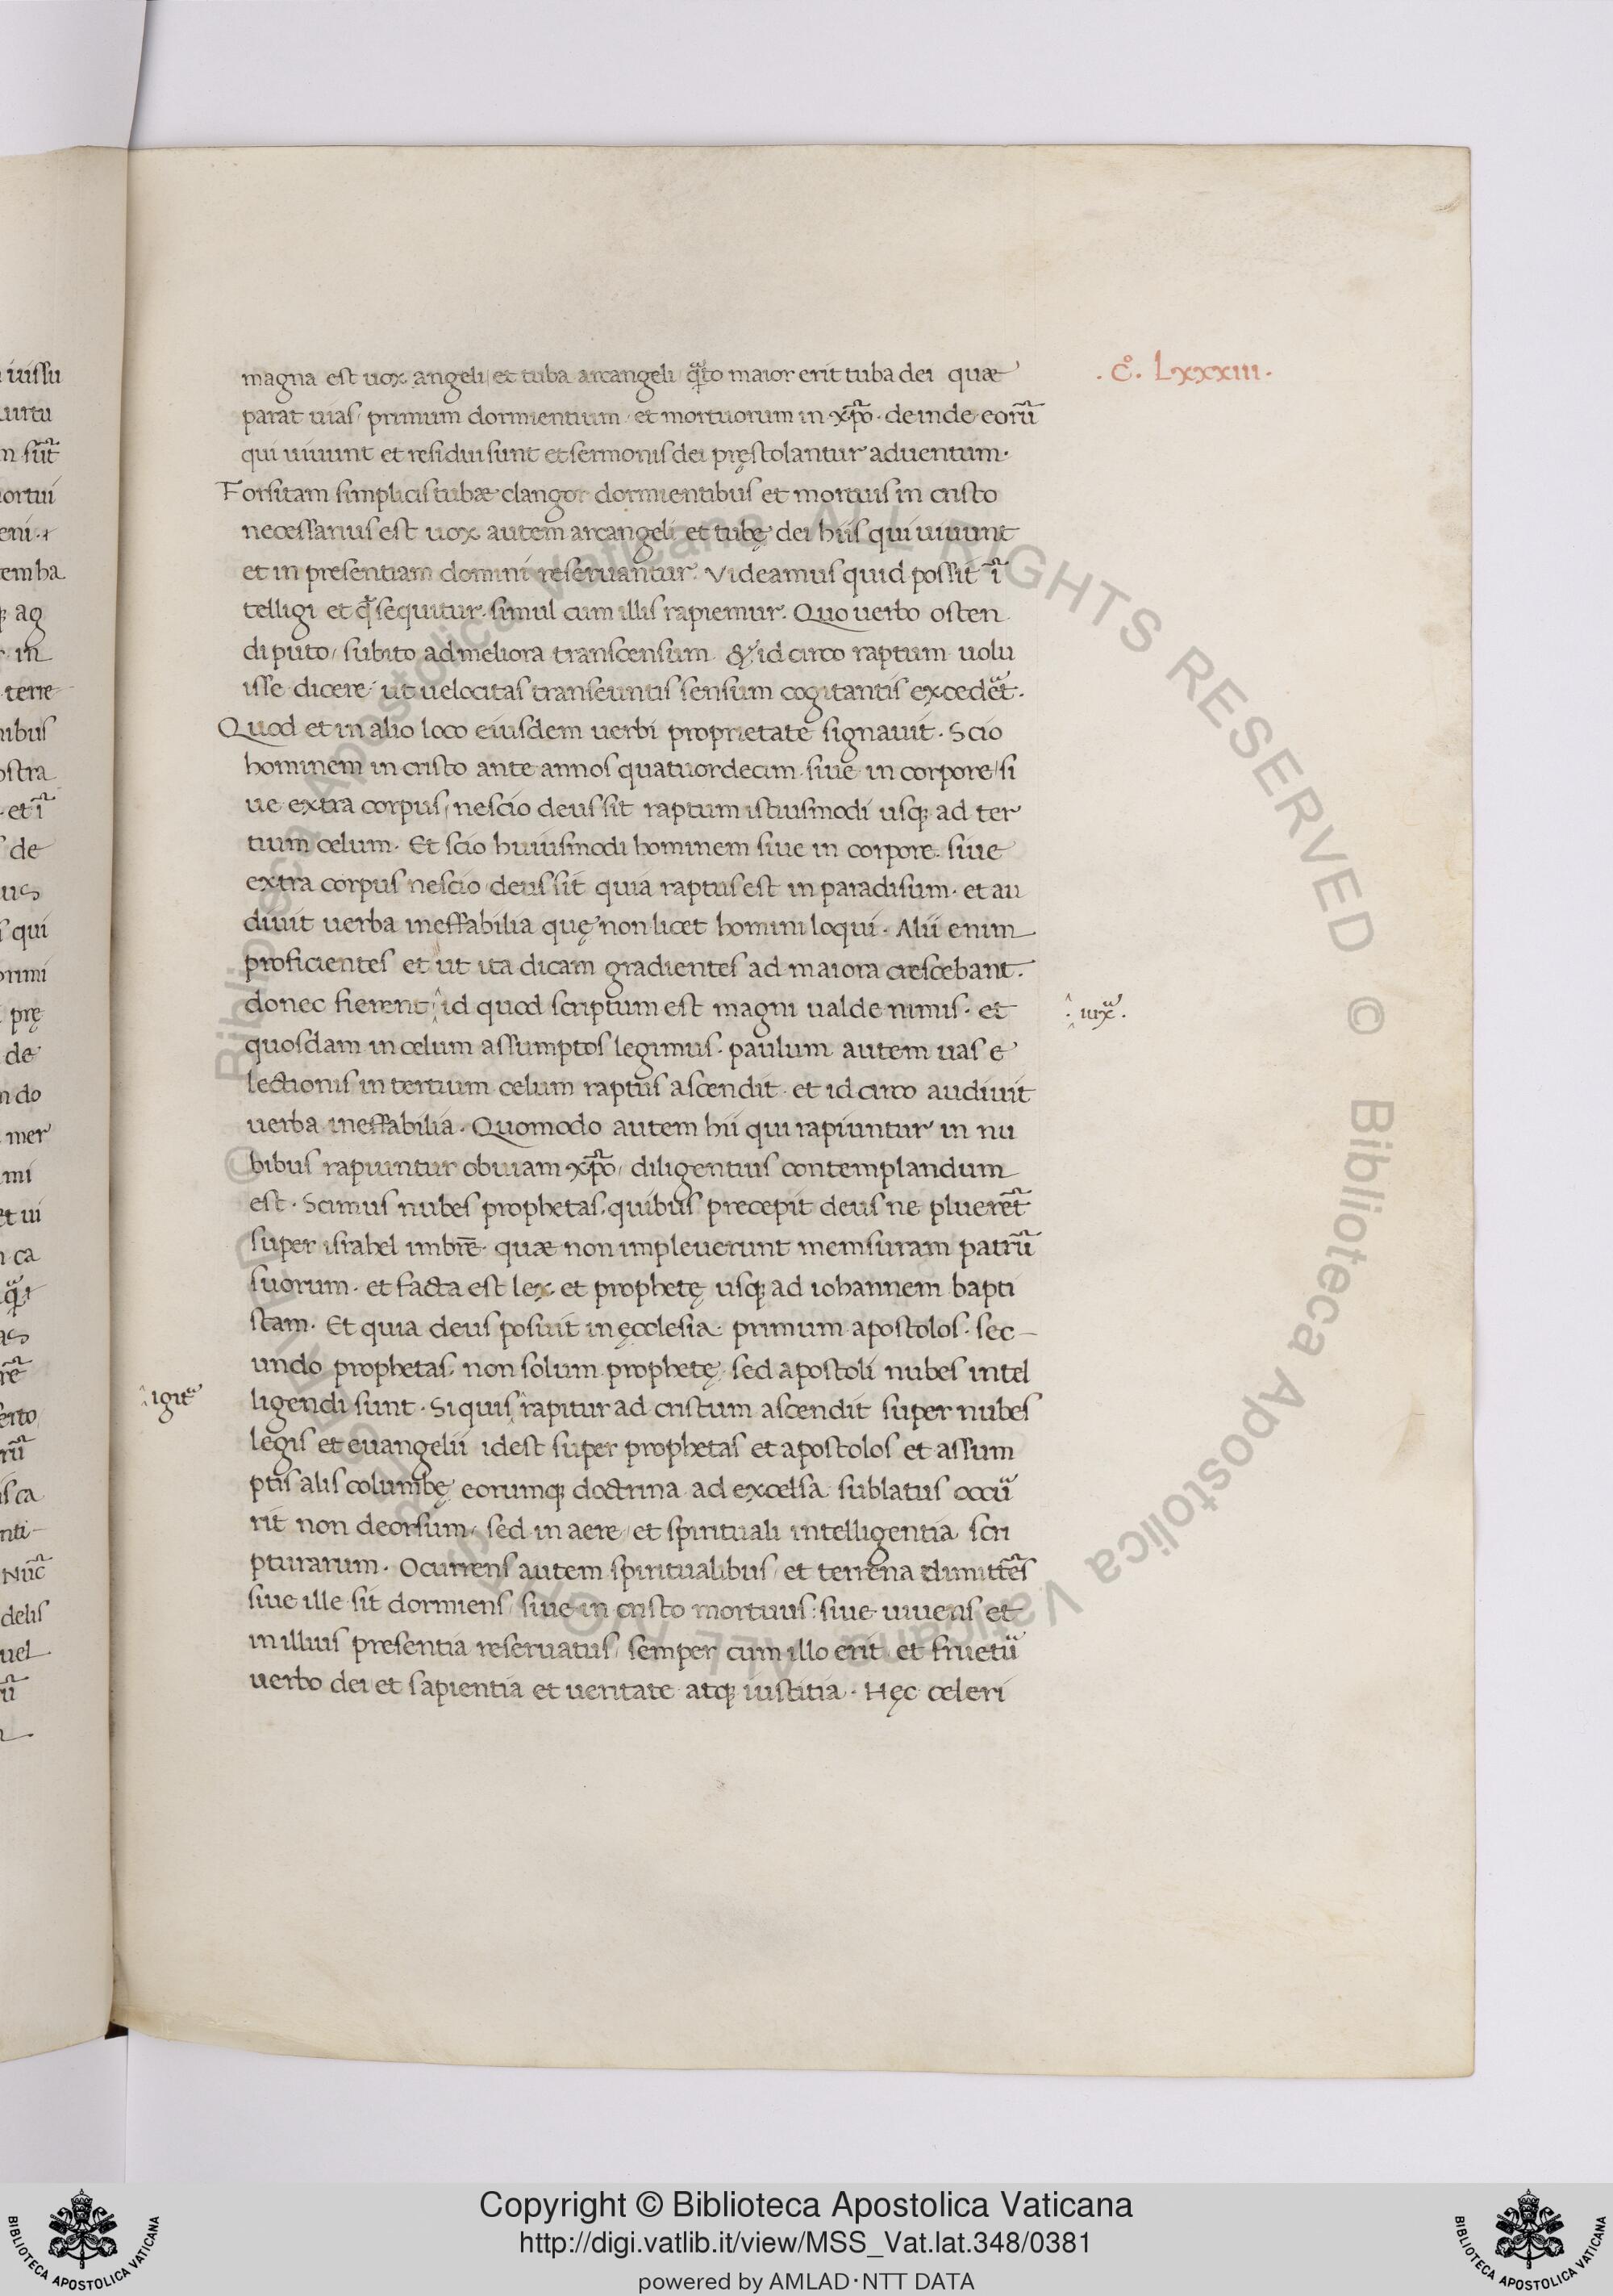 .Eͦ. Lxxxiii.
magna est uox angeli / et tuba arcangeli / qᷓto maior erit tuba dei quæ
parat uias / primum dormientium / et mortuorum in xp̃o · deinde eorũ
qui uiuunt et residui sunt et sermonis dei pręstolantur aduentum ·
Forsitam simplicis tubæ clangor dormientibus et mortuis in cristo
necessarius est uox autem arcangeli et tubę dei hiis qui uiuunt
et in presentiam domini reseruantur. Videamus quid possit ĩ
telligi et qͩ sequitur · simul cum illis rapiemur. Quo uerbo osten
di puto / subito ad meliora transcensum & id circo raptum uolu
isse dicere / ut uelocitas transeuntis sensum cogitantis excedeᷓt.
Quod et in alio loco eiusdem uerbi proprietate signauit. Scio
hominem in cristo ante annos quatuordecim · siue in corpore / si
ue extra corpus / nescio deus sit raptum istiusmodi usq; ad ter
tium celum. Et scio huiusmodi hominem siue in corpore. siue
extra corpus nescio deus sit quia raptus est in paradisum · et au
diuit uerba ineffabilia quę non licet homini loqui. Alii enim
proficientes et ut ita dicam gradientes ad maiora crescebant.
donec fierent ^ id quod scriptum est magni ualde nimis · et
^ · iuxᷓ ·
quosdam in celum assumptos legimus · paulum autem uas e
lectionis in tertium celum raptus ascendit · et id circo audiuit
uerba ineffabilia. Quomodo autem hii qui rapiuntur in nu
bibus rapiuntur obuiam xp̃o / diligentius contemplandum
est. Scimus nubes prophetas · quibus precepit deus ne pluerẽt
super israhel imbrẽ · quæ non impleuerunt memsuram patrũ
suorum · et facta est lex et prophetę usq; ad iohannem bapti
stam. Et quia deus posuit in ęcclesia · primum apostolos · sec-
undo prophetas · non solum prophetę · sed apostoli nubes intel
^ igitᷓ
ligendi sunt. Si quis ^ rapitur ad cristum ascendit super nubes
legis et euangelii idest super prophetas et apostolos et assum
ptis alis columbę eorumq; doctrina ad excelsa sublatus occuᷓ
rit non deorsum / sed in aere / et spirituali intelligentia scri
pturarum. Ocurrens autem spiritualibus / et terrena dimittẽs
siue ille sit dormiens / siue in cristo mortuus : siue uiuens et
in illius presentia reseruatus / semper cum illo erit · et fruetuᷓ
uerbo dei et sapientia et ueritate atq; iustitia. Hęc celeri
Copyright © Biblioteca Apostolica Vaticana
http://digi.vatlib.it/view/MSS_Vat.lat.348/0381
powered by AMLAD·NTT DATA